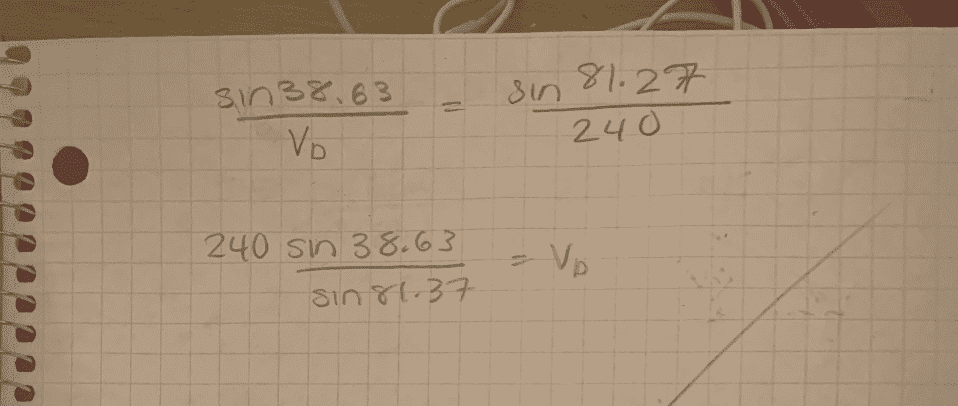 sin 38.63 / V_D = sin 81.27 / 240
240 sin 38.63 / sin 81.37 = V_D